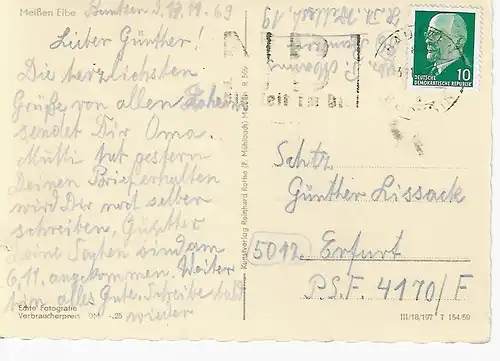 Meißen Elbe
Bautzen d. 17.11.69
Lieber Günther!
Die herzlichsten
Grüße von allen
sendet Dir Oma.
Mutti hat gestern
Deinen Brief erhalten
wird Dir noch selber
schreiben, Günther
Deine sind am
6.11. angekommen. Weiter
hin alles Gute. Schreibe bald
wieder
Echte Fotografie
Verbraucherpreis DM -.25
Kunstverlag Reinhard Rothe (F. Mühlbach) Meißen R 559
DEUTSCHE
DEMOKRATISCHE REPUBLIK
10
Schtz.
Günther Lissack
5012 Erfurt
P.S.F. 4170/F
III/18/197 T 154/59